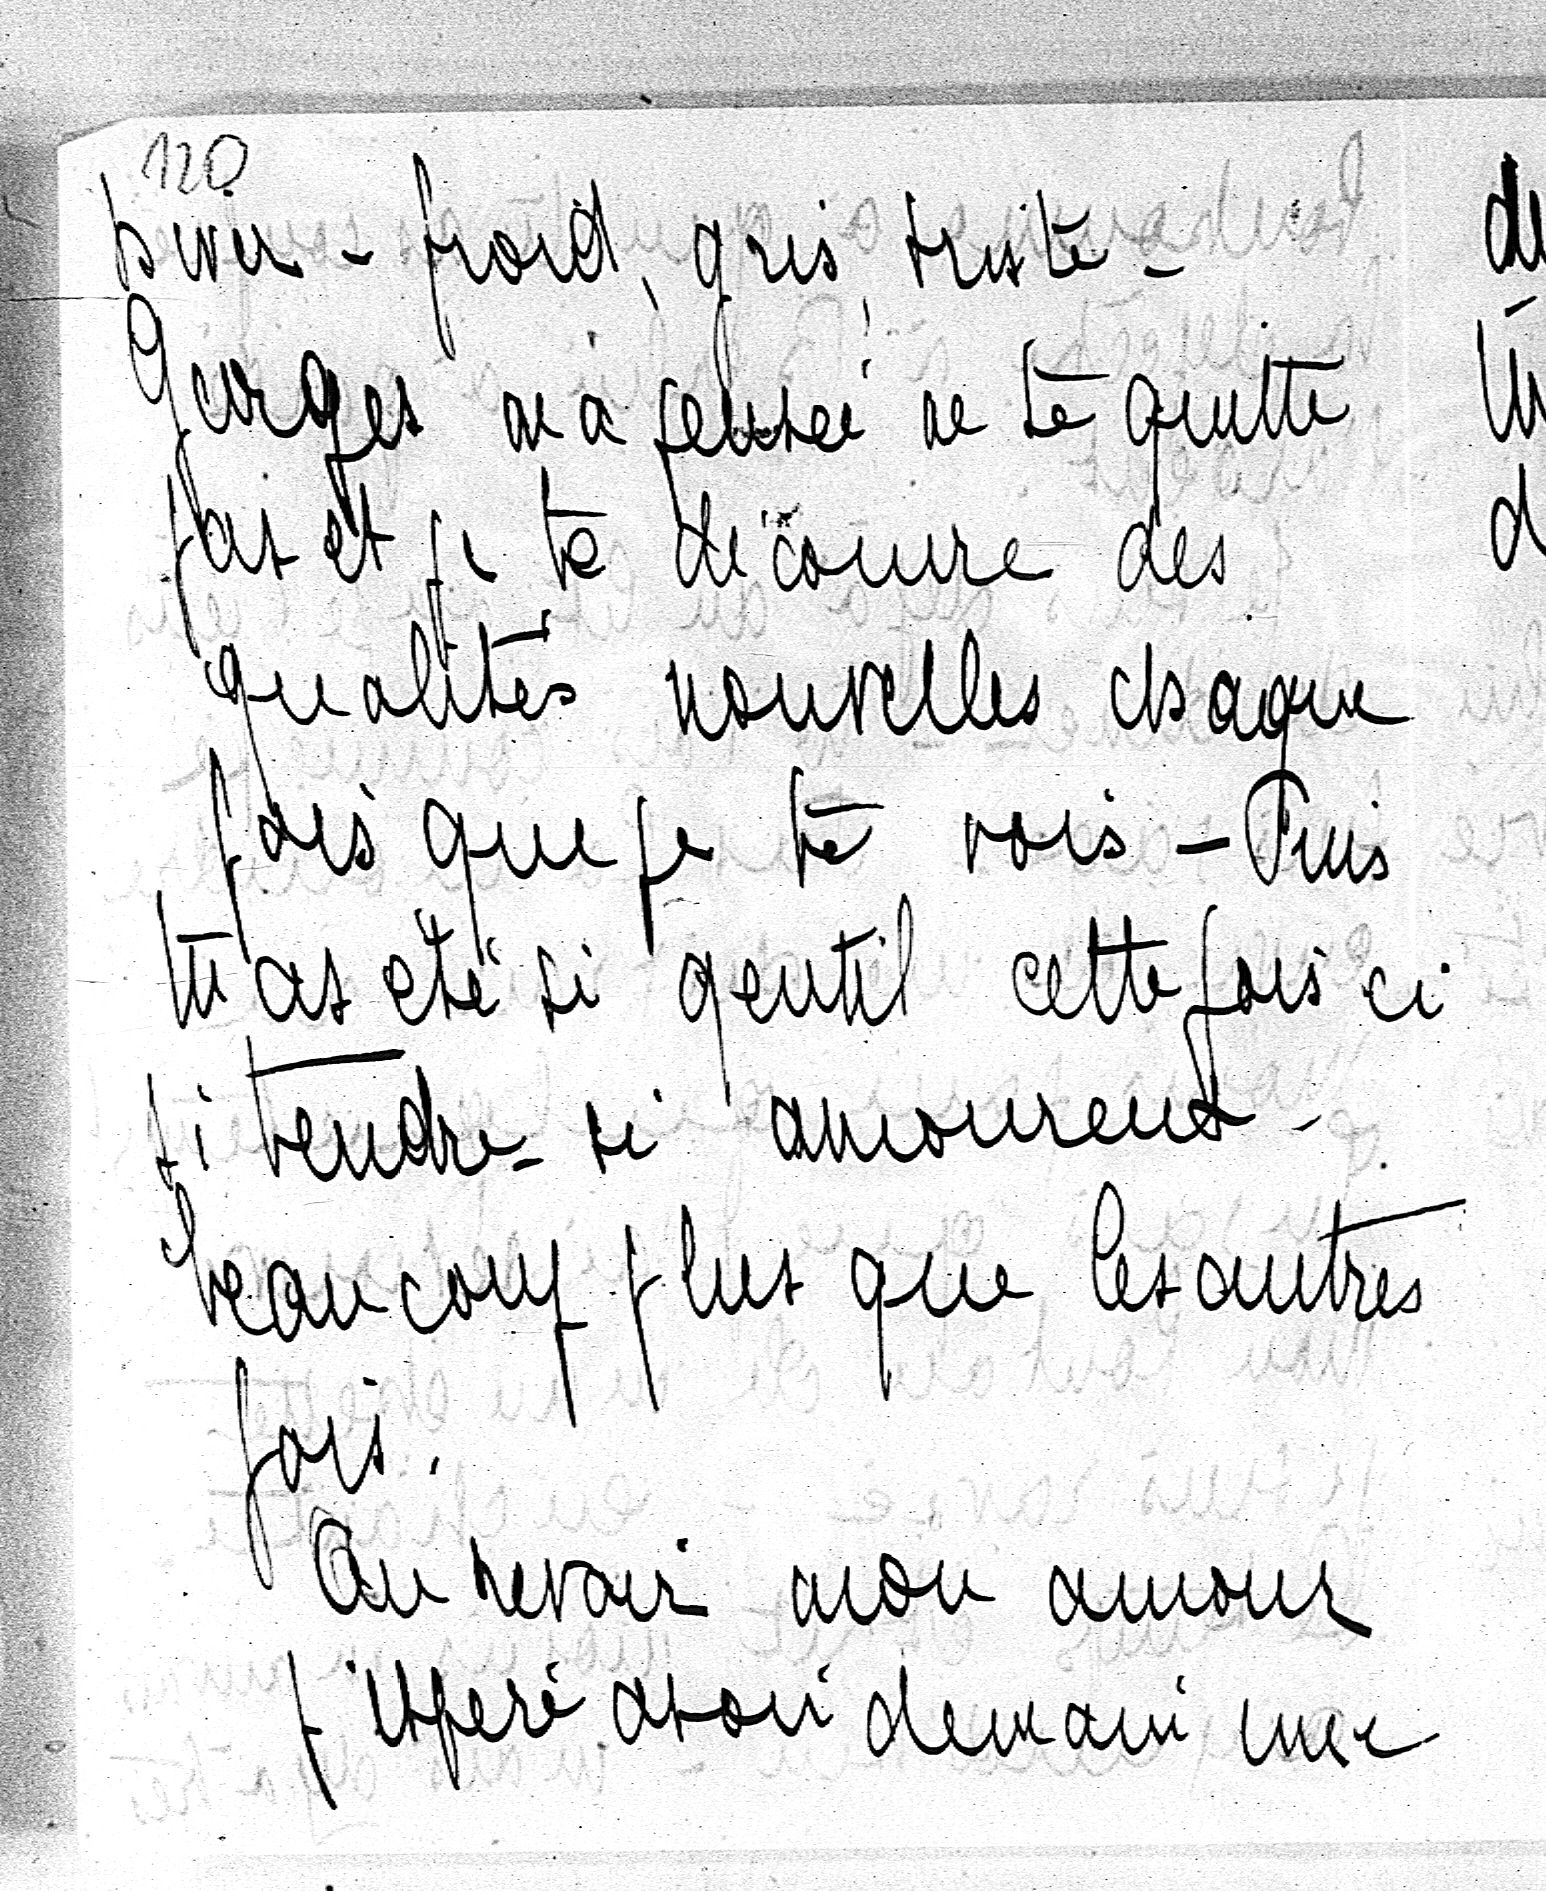 120
hiver - froid, gris, triste -
Georges ma pensée ne te quitte
pas et je te découvre des
qualités nouvelles chaque
fois que je te vois - Puis
tu as été si gentil cette fois ci
si tendre - si amoureux -
beaucoup plus que les autres
fois.
Au revoir mon amour
j'espère avoir demain une